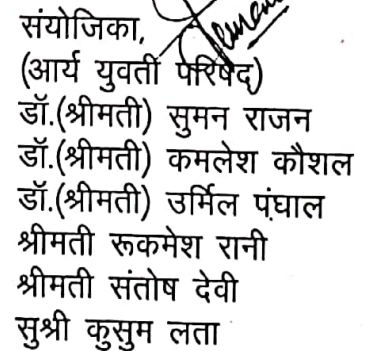 संयोजिका,
(आर्य युवती परिषद)
डॉ.(श्रीमती) सुमन राजन
डॉ.(श्रीमती) कमलेश कौशल
डॉ.(श्रीमती) उर्मिल पंघाल
श्रीमती रूकमेश रानी
श्रीमती संतोष देवी
सुश्री कुसुम लता